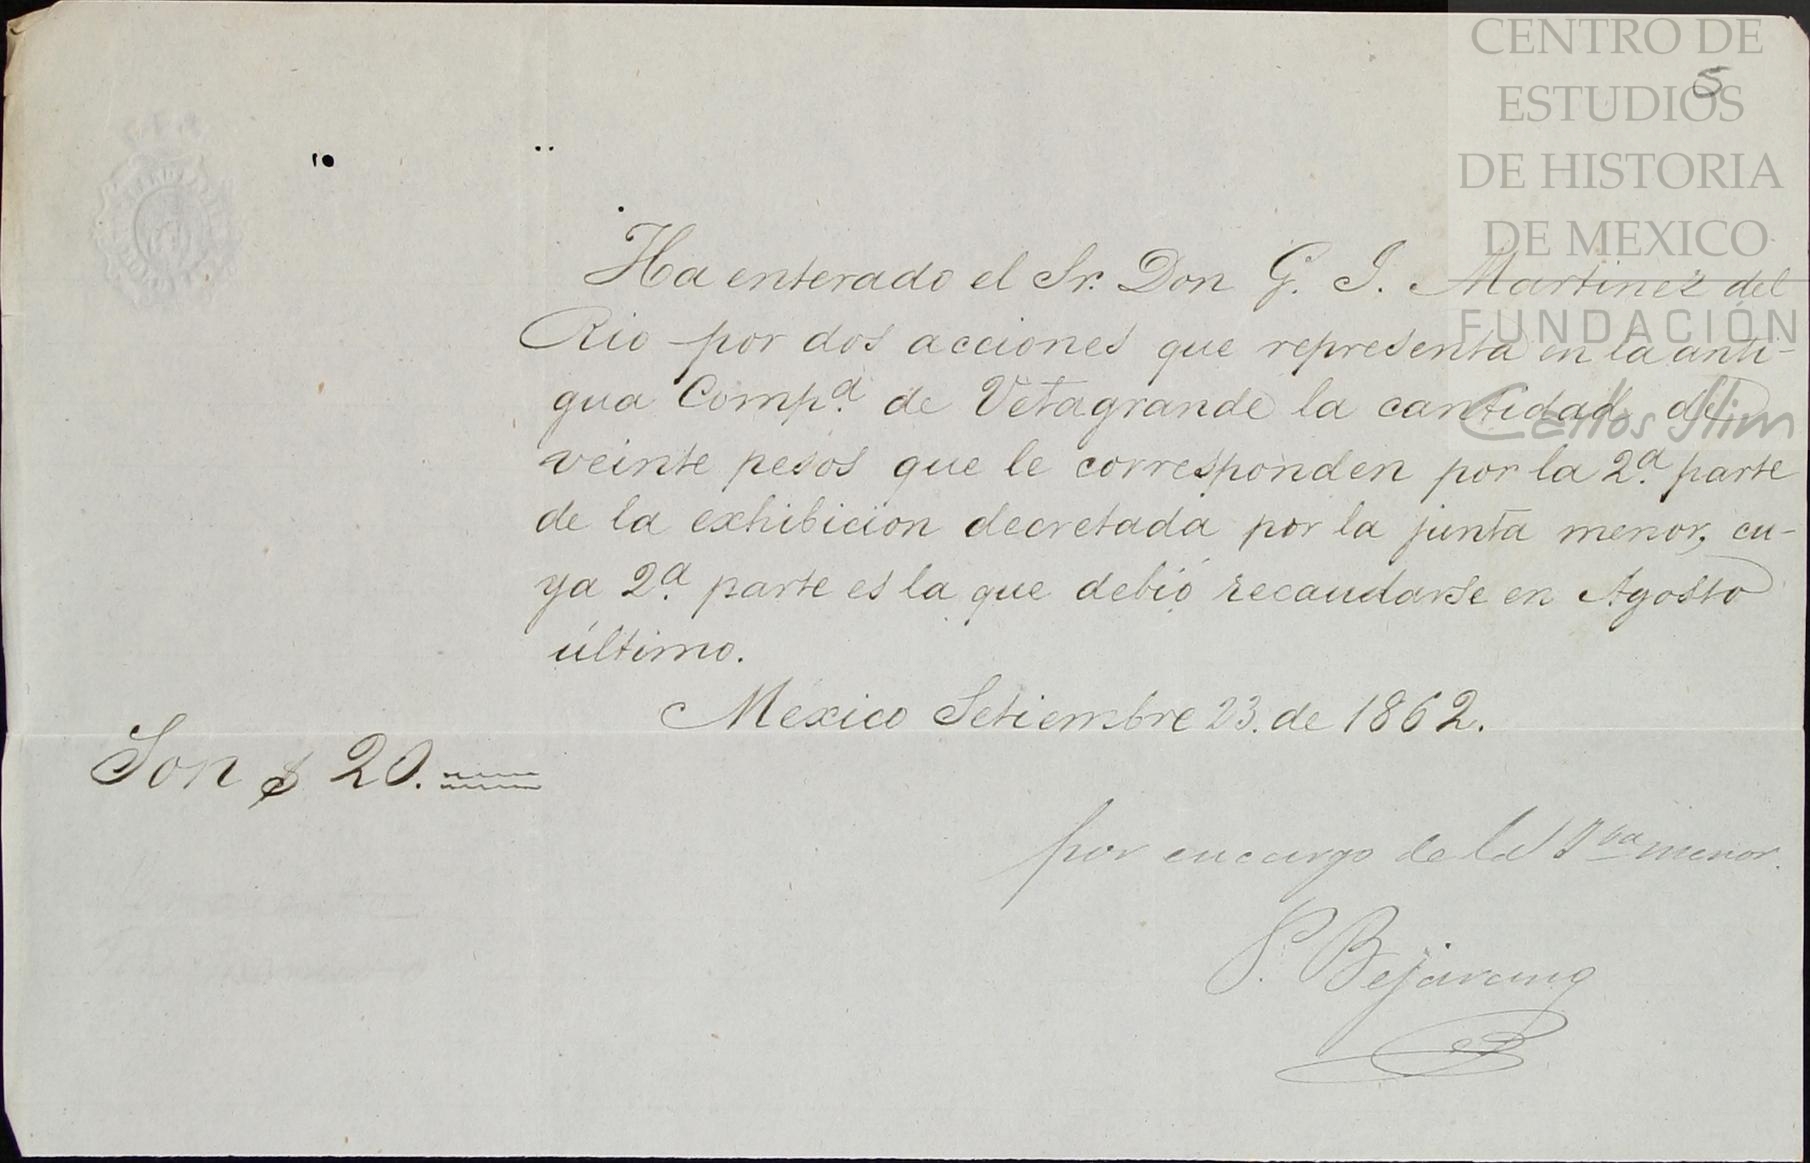 CENTRO DE
ESTUDIOS
DE HISTORIA
DE MEXICO
FUNDACIÓN
Carlos Slim
5
Ha enterado el Sr. Don G. I. Martinez del
Rio por dos acciones que representa en la anti-
gua Comp.ª de Vetagrande la cantidad de
veinte pesos que le corresponden por la 2.ª parte
de la exhibicion decretada por la junta menor, cu-
ya 2.ª parte es la que debió recaudarse en Agosto
último.
México Setiembre 23. de 1862.
Son $ 20.
por encargo de la menor.
Bejarano